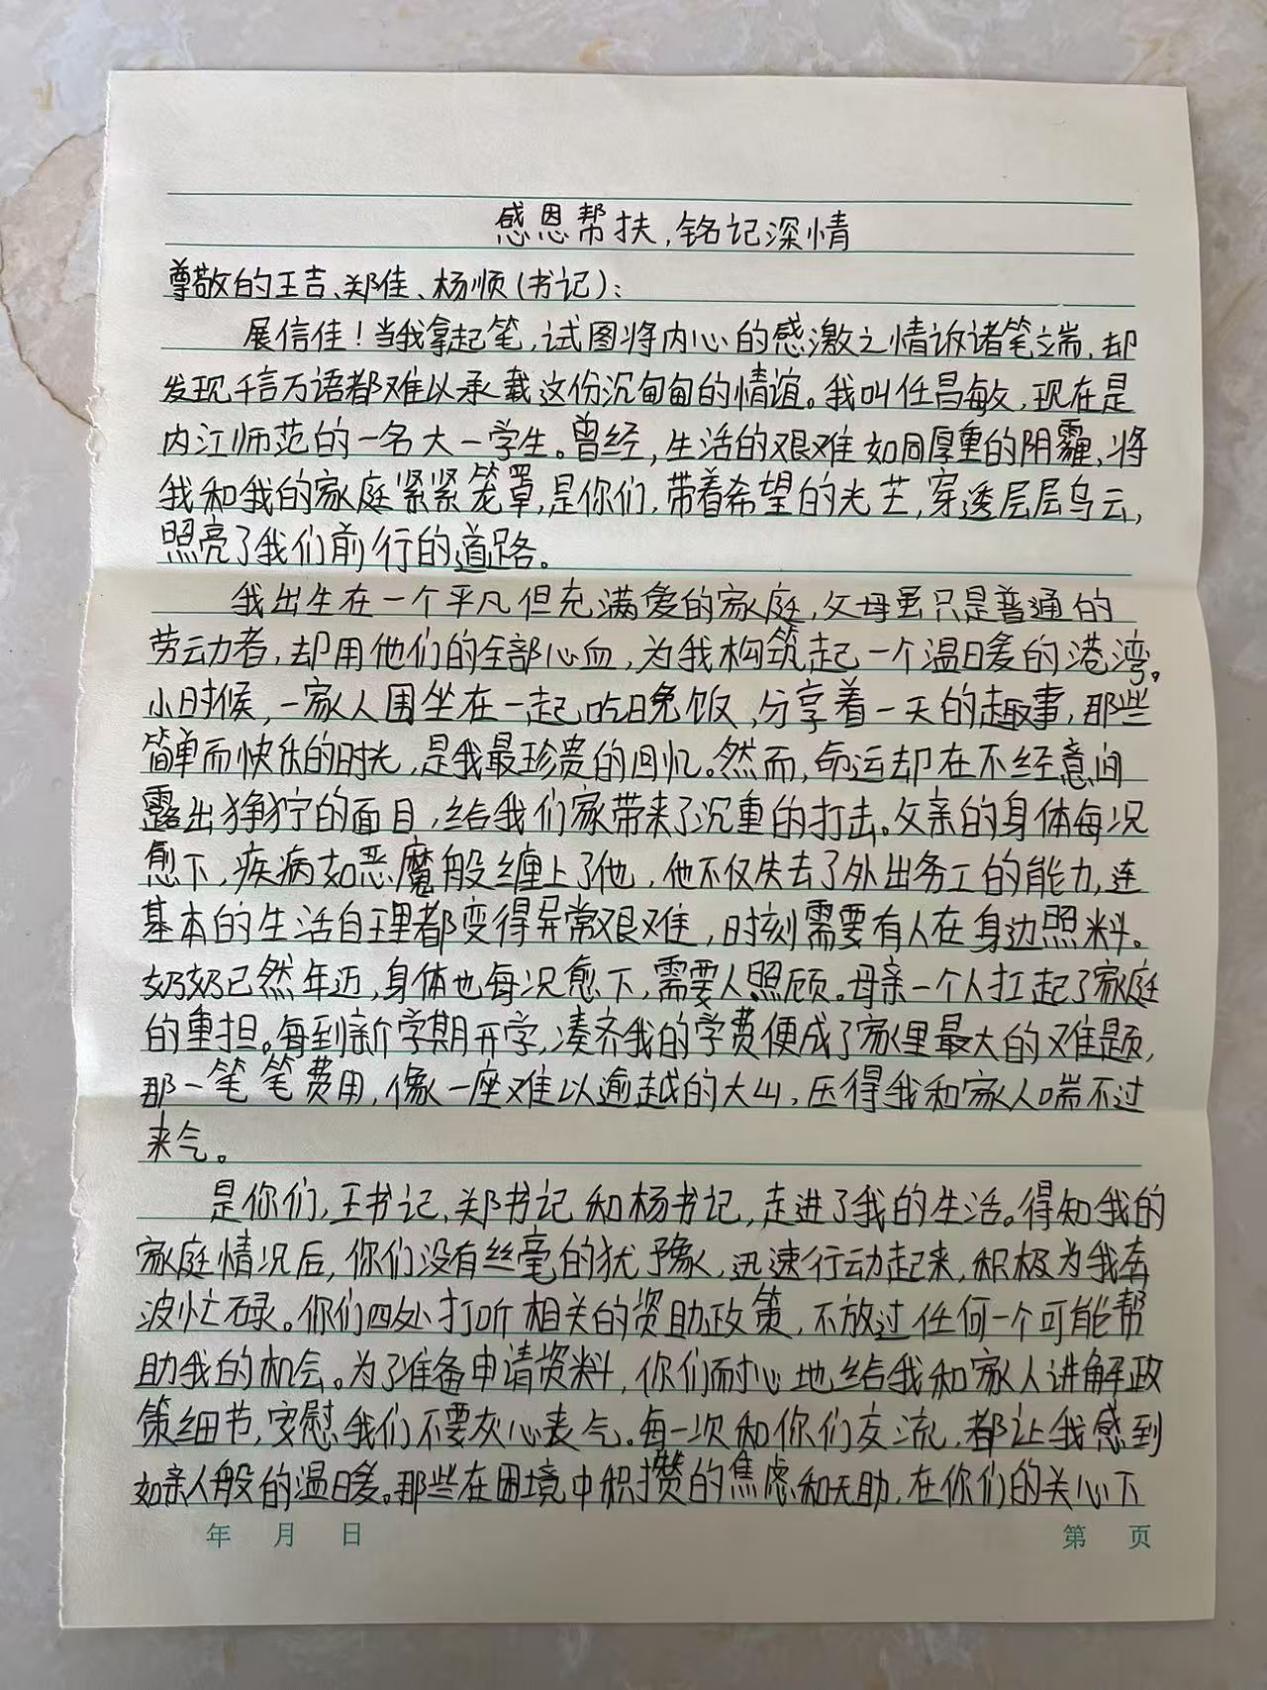 感恩帮扶,铭记深情
尊敬的王吉、郑佳、杨顺(书记):
展信佳!当我拿起笔,试图将内心的感激之情诉诸笔端,却
发现千言万语都难以承载这份沉甸甸的情谊。我叫任昌敏,现在是
内江师范的一名大一学生。曾经,生活的艰难如同厚重的阴霾,将
我和我的家庭紧紧笼罩,是你们,带着希望的光芒,穿透层层乌云,
照亮了我们前行的道路。
我出生在一个平凡但充满爱的家庭,父母虽只是普通的
劳动者,却用他们的全部心血,为我构筑起一个温暖的港湾。
小时候,一家人围坐在一起吃晚饭,分享着一天的趣事,那些
简单而快乐的时光,是我最珍贵的回忆。然而,命运却在不经意间
露出狰狞的面目,给我们家带来了沉重的打击。父亲的身体每况
愈下,疾病如恶魔般缠上了他,他不仅失去了外出务工的能力,连
基本的生活自理都变得异常艰难,时刻需要有人在身边照料。
奶奶已然年迈,身体也每况愈下,需要人照顾。母亲一个人扛起了家庭
的重担。每到新学期开学,凑齐我的学费便成了家里最大的难题,
那一笔笔费用,像一座难以逾越的大山,压得我和家人喘不过
来气。
是你们,王书记,郑书记和杨书记,走进了我的生活。得知我的
家庭情况后,你们没有丝毫的犹豫,迅速行动起来,积极为我奔
波忙碌。你们四处打听相关的资助政策,不放过任何一个可能帮
助我的机会。为了准备申请资料,你们耐心地给我和家人讲解政
策细节,安慰我们不要灰心丧气。每一次和你们交流,都让我感到
如亲人般的温暖。那些在困境中积攒的焦虑和无助,在你们的关心下
年 月 日 第 页